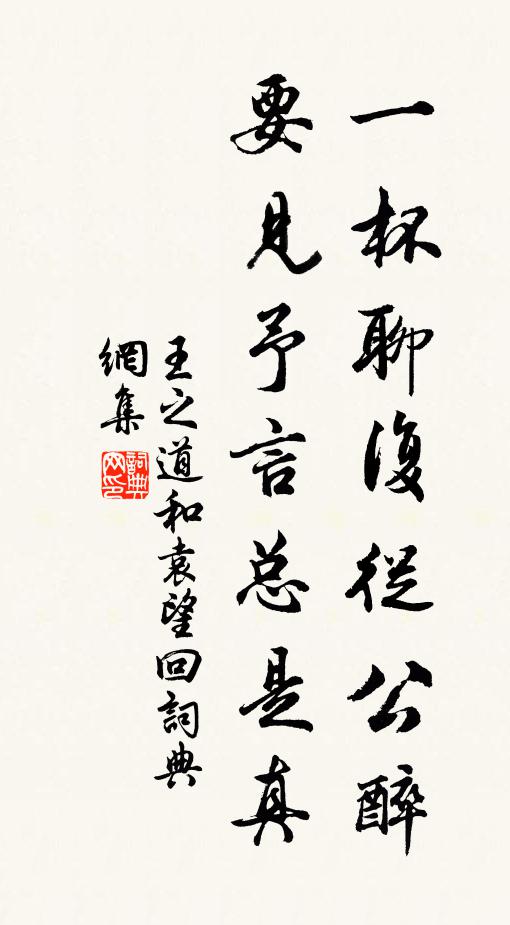 一杯聊復從公醉
要見予言总是真
王之道和袁望回詞典
網集
詞典
网印